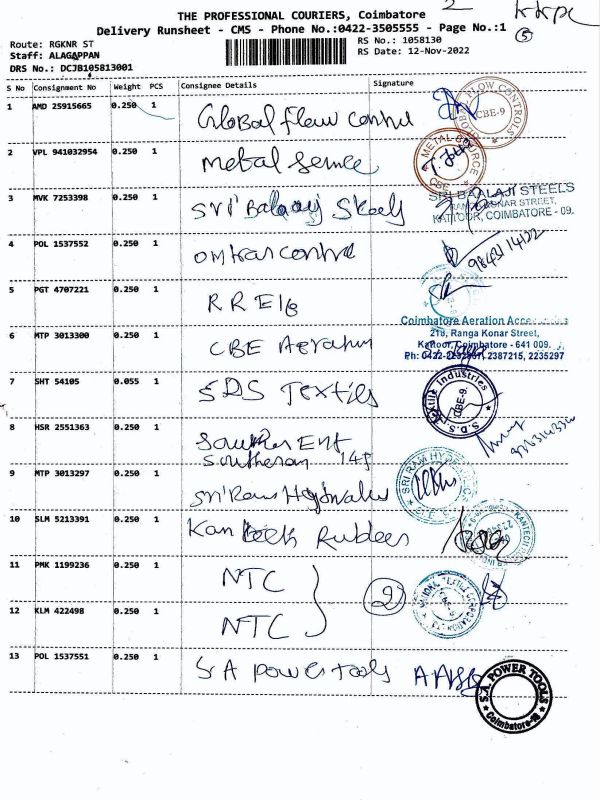 THE PROFESSIONAL COURIERS, Coimbatore
Delivery Runsheet - CMS - Phone No.:0422-3505555 - Page No.:1
kkpc
5
Route: RGKNR ST
RS No.: 1058130
Staff: ALAGAPPAN
RS Date: 12-Nov-2022
DRS No.: DCJB105813001
S No Consignment No Weight PCS Consignee Details Signature
1 AMD 25915665 0.250 1 Global flow control
FLOW CONTROLS CBE-9
2 VPL 941032954 0.250 1 metal
METAL CBE
3 MVK 7253398 0.250 1 Sri Balaaji Steels
SRI BAALAJI STEELS
KONAR STREET,
KATTOOR, COIMBATORE - 09.
4 POL 1537552 0.250 1 omkar control
5 PGT 4707221 0.250 1 R R
6 MTP 3013300 0.250 1 CBE Aeration
Coimbatore Aeration
218, Ranga Konar Street,
Kattoor, Coimbatore - 641 009.
Ph: 2387215, 2235297
7 SHT 54105 0.055 1 SDS Textiles
S.D.S. Textile Industries CBE-9.
8 HSR 2551363 0.250 1 Southern Ent
Southeran
9 MTP 3013297 0.250 1 Sri Ram Hydraulics
SRI RAM
10 SLM 5213391 0.250 1 Kan Teck Rubbers
KANTECH
11 PMK 1199236 0.250 1 NTC
2
12 KLM 422498 0.250 1 NTC
NATIONAL TEXTILE CORPORATION
13 POL 1537551 0.250 1 S A power tools
S.A. POWER TOOLS
Coimbatore